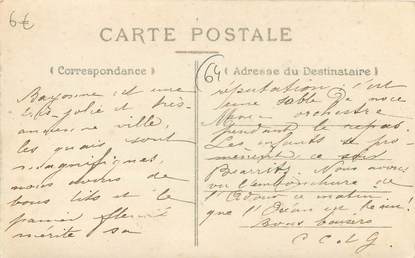 6€
CARTE POSTALE
( Correspondance )
64
( Adresse du Destinataire )
Bayonne est une
très jolie et très
ancienne ville,
les quais sont
magnifiques,
nous avons de
bons lits et le
panier fleuri
mérite sa
réputation, c'est
une table de noce
Moins orchestre
pendant le repas.
Les enfants se pro-
mènent ce soir
Biarritz. Nous avons
vu l'embouchure de
l'Adour ce matin.
que l'Océan est beau!
Bons baisers
C C et G.